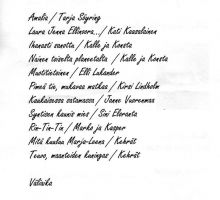 Amalia / Tarja Siguring
Laura Jenna Ellinoora.../ Kati Kaasalainen
Ihanasti sanottu / Kalle ja Konsta
Nainen toiselta planeetalta / Kalle ja Konsta
Mustitiainen / Elli Lukander
Pimeä tie, mukavaa matkaa / Kirsi Lindholm
Kaukaisessa satamassa / Janne Vuorenmaa
Syntisen kaunis mies / Sini Eloranta
Rin-Tin-Tin / Marko ja Kasper
Mitä kuuluu Marja-Leena / Kehrät
Teuvo, maanteiden kuningas / Kehrät
Väliaika